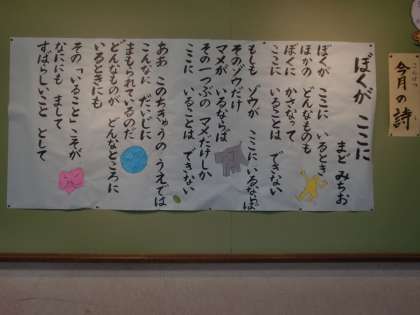 今月の詩
こんげつ
し
ぼくが ここに
まど みちお
ぼくが ここに いるとき
ほかの どんなものも
ぼくに かさなって
ここに いることは できない
もしも ゾウが ここに いるならば
そのゾウだけ
マメが いるならば
その一つぶの マメだけしか
ここに いることは できない
ああ このちきゅうの うえでは
こんなに だいじに
まもられているのだ
どんなものが どんなところに
いるときにも
その「いること」こそが
なににも まして
すばらしいこと として